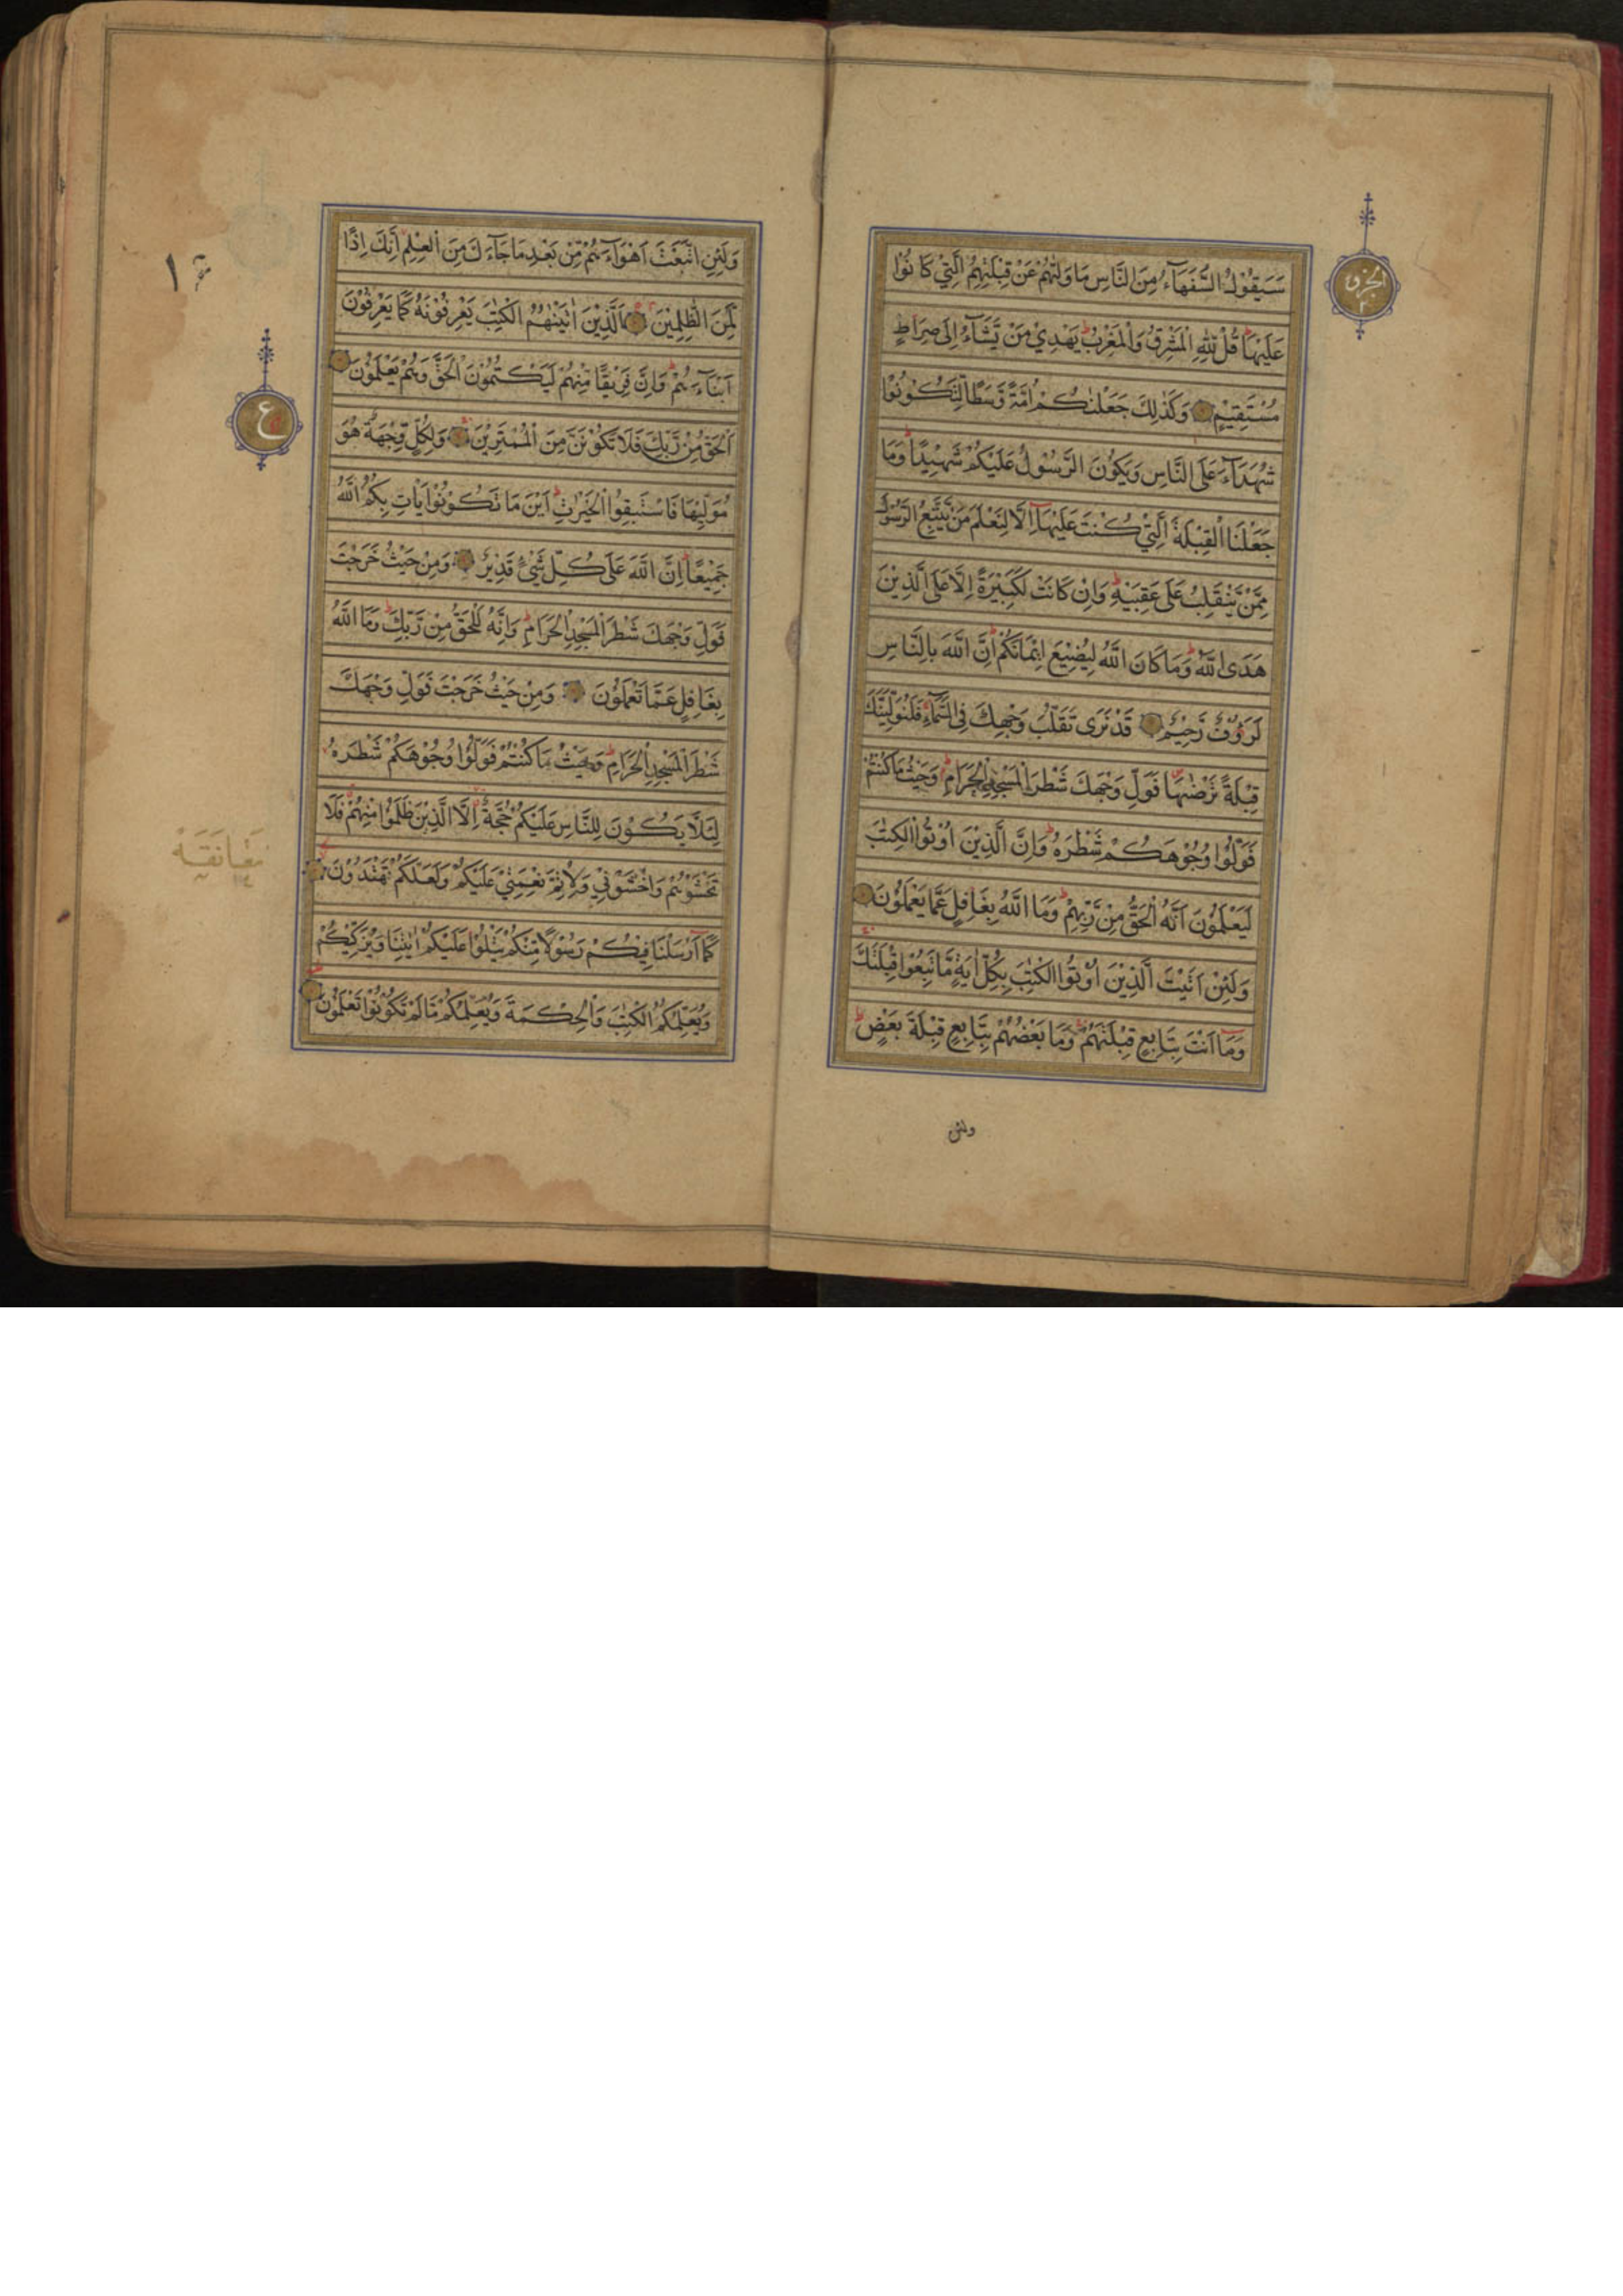 سَيَقُوْلُ السُّفَهَآءُ مِنَ النَّاسِ مَا وَلّٰىهُمْ عَنْ قِبْلَتِهِمُ الَّتِيْ كَانُوْا
عَلَيْهَا ؕ قُلْ لِّلّٰهِ الْمَشْرِقُ وَالْمَغْرِبُ ؕ يَهْدِيْ مَنْ يَّشَآءُ اِلٰى صِرَاطٍ
مُّسْتَقِيْمٍ وَكَذٰلِكَ جَعَلْنٰكُمْ اُمَّةً وَّسَطًا لِّتَكُوْنُوْا
شُهَدَآءَ عَلَى النَّاسِ وَيَكُوْنَ الرَّسُوْلُ عَلَيْكُمْ شَهِيْدًا ؕ وَمَا
جَعَلْنَا الْقِبْلَةَ الَّتِيْ كُنْتَ عَلَيْهَآ اِلَّا لِنَعْلَمَ مَنْ يَّتَّبِعُ الرَّسُوْلَ
مِمَّنْ يَّنْقَلِبُ عَلٰى عَقِبَيْهِ ؕ وَاِنْ كَانَتْ لَكَبِيْرَةً اِلَّا عَلَى الَّذِيْنَ
هَدَى اللّٰهُ ؕ وَمَا كَانَ اللّٰهُ لِيُضِيْعَ اِيْمَانَكُمْ ؕ اِنَّ اللّٰهَ بِالنَّاسِ
لَرَءُوْفٌ رَّحِيْمٌ قَدْ نَرٰى تَقَلُّبَ وَجْهِكَ فِي السَّمَآءِ فَلَنُوَلِّيَنَّكَ
قِبْلَةً تَرْضٰىهَا فَوَلِّ وَجْهَكَ شَطْرَ الْمَسْجِدِ الْحَرَامِ ؕ وَحَيْثُ مَا كُنْتُمْ
فَوَلُّوْا وُجُوْهَكُمْ شَطْرَهٗ ؕ وَاِنَّ الَّذِيْنَ اُوْتُوا الْكِتٰبَ
لَيَعْلَمُوْنَ اَنَّهُ الْحَقُّ مِنْ رَّبِّهِمْ ؕ وَمَا اللّٰهُ بِغَافِلٍ عَمَّا يَعْمَلُوْنَ
وَلَئِنْ اَتَيْتَ الَّذِيْنَ اُوْتُوا الْكِتٰبَ بِكُلِّ اٰيَةٍ مَّا تَبِعُوْا قِبْلَتَكَ
وَمَآ اَنْتَ بِتَابِعٍ قِبْلَتَهُمْ وَمَا بَعْضُهُمْ بِتَابِعٍ قِبْلَةَ بَعْضٍ ؕ
ولئن
وَلَئِنِ اتَّبَعْتَ اَهْوَآءَهُمْ مِّنْ بَعْدِ مَا جَآءَكَ مِنَ الْعِلْمِ اِنَّكَ اِذًا
لَّمِنَ الظّٰلِمِيْنَ اَلَّذِيْنَ اٰتَيْنٰهُمُ الْكِتٰبَ يَعْرِفُوْنَهٗ كَمَا يَعْرِفُوْنَ
اَبْنَآءَهُمْ ؕ وَاِنَّ فَرِيْقًا مِّنْهُمْ لَيَكْتُمُوْنَ الْحَقَّ وَهُمْ يَعْلَمُوْنَ
اَلْحَقُّ مِنْ رَّبِّكَ فَلَا تَكُوْنَنَّ مِنَ الْمُمْتَرِيْنَ وَلِكُلٍّ وِّجْهَةٌ هُوَ
مُوَلِّيْهَا فَاسْتَبِقُوا الْخَيْرٰتِ ؕ اَيْنَ مَا تَكُوْنُوْا يَاْتِ بِكُمُ اللّٰهُ
جَمِيْعًا ؕ اِنَّ اللّٰهَ عَلٰى كُلِّ شَيْءٍ قَدِيْرٌ وَمِنْ حَيْثُ خَرَجْتَ
فَوَلِّ وَجْهَكَ شَطْرَ الْمَسْجِدِ الْحَرَامِ ؕ وَاِنَّهٗ لَلْحَقُّ مِنْ رَّبِّكَ ؕ وَمَا اللّٰهُ
بِغَافِلٍ عَمَّا تَعْمَلُوْنَ وَمِنْ حَيْثُ خَرَجْتَ فَوَلِّ وَجْهَكَ
شَطْرَ الْمَسْجِدِ الْحَرَامِ ؕ وَحَيْثُ مَا كُنْتُمْ فَوَلُّوْا وُجُوْهَكُمْ شَطْرَهٗ
لِئَلَّا يَكُوْنَ لِلنَّاسِ عَلَيْكُمْ حُجَّةٌ اِلَّا الَّذِيْنَ ظَلَمُوْا مِنْهُمْ فَلَا
تَخْشَوْهُمْ وَاخْشَوْنِيْ وَلِاُتِمَّ نِعْمَتِيْ عَلَيْكُمْ وَلَعَلَّكُمْ تَهْتَدُوْنَ
كَمَآ اَرْسَلْنَا فِيْكُمْ رَسُوْلًا مِّنْكُمْ يَتْلُوْا عَلَيْكُمْ اٰيٰتِنَا وَيُزَكِّيْكُمْ
وَيُعَلِّمُكُمُ الْكِتٰبَ وَالْحِكْمَةَ وَيُعَلِّمُكُمْ مَّا لَمْ تَكُوْنُوْا تَعْلَمُوْنَ
ع
مُعَانَقَة